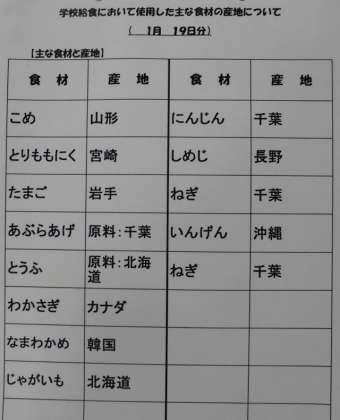 学校給食において使用した主な食材の産地について
( 1月 19日分)
【主な食材と産地】
食 材 産 地 食 材 産 地
こめ 山形 にんじん 千葉
とりももにく 宮崎 しめじ 長野
たまご 岩手 ねぎ 千葉
あぶらあげ 原料：千葉 いんげん 沖縄
とうふ 原料：北海道 ねぎ 千葉
わかさぎ カナダ
なまわかめ 韓国
じゃがいも 北海道